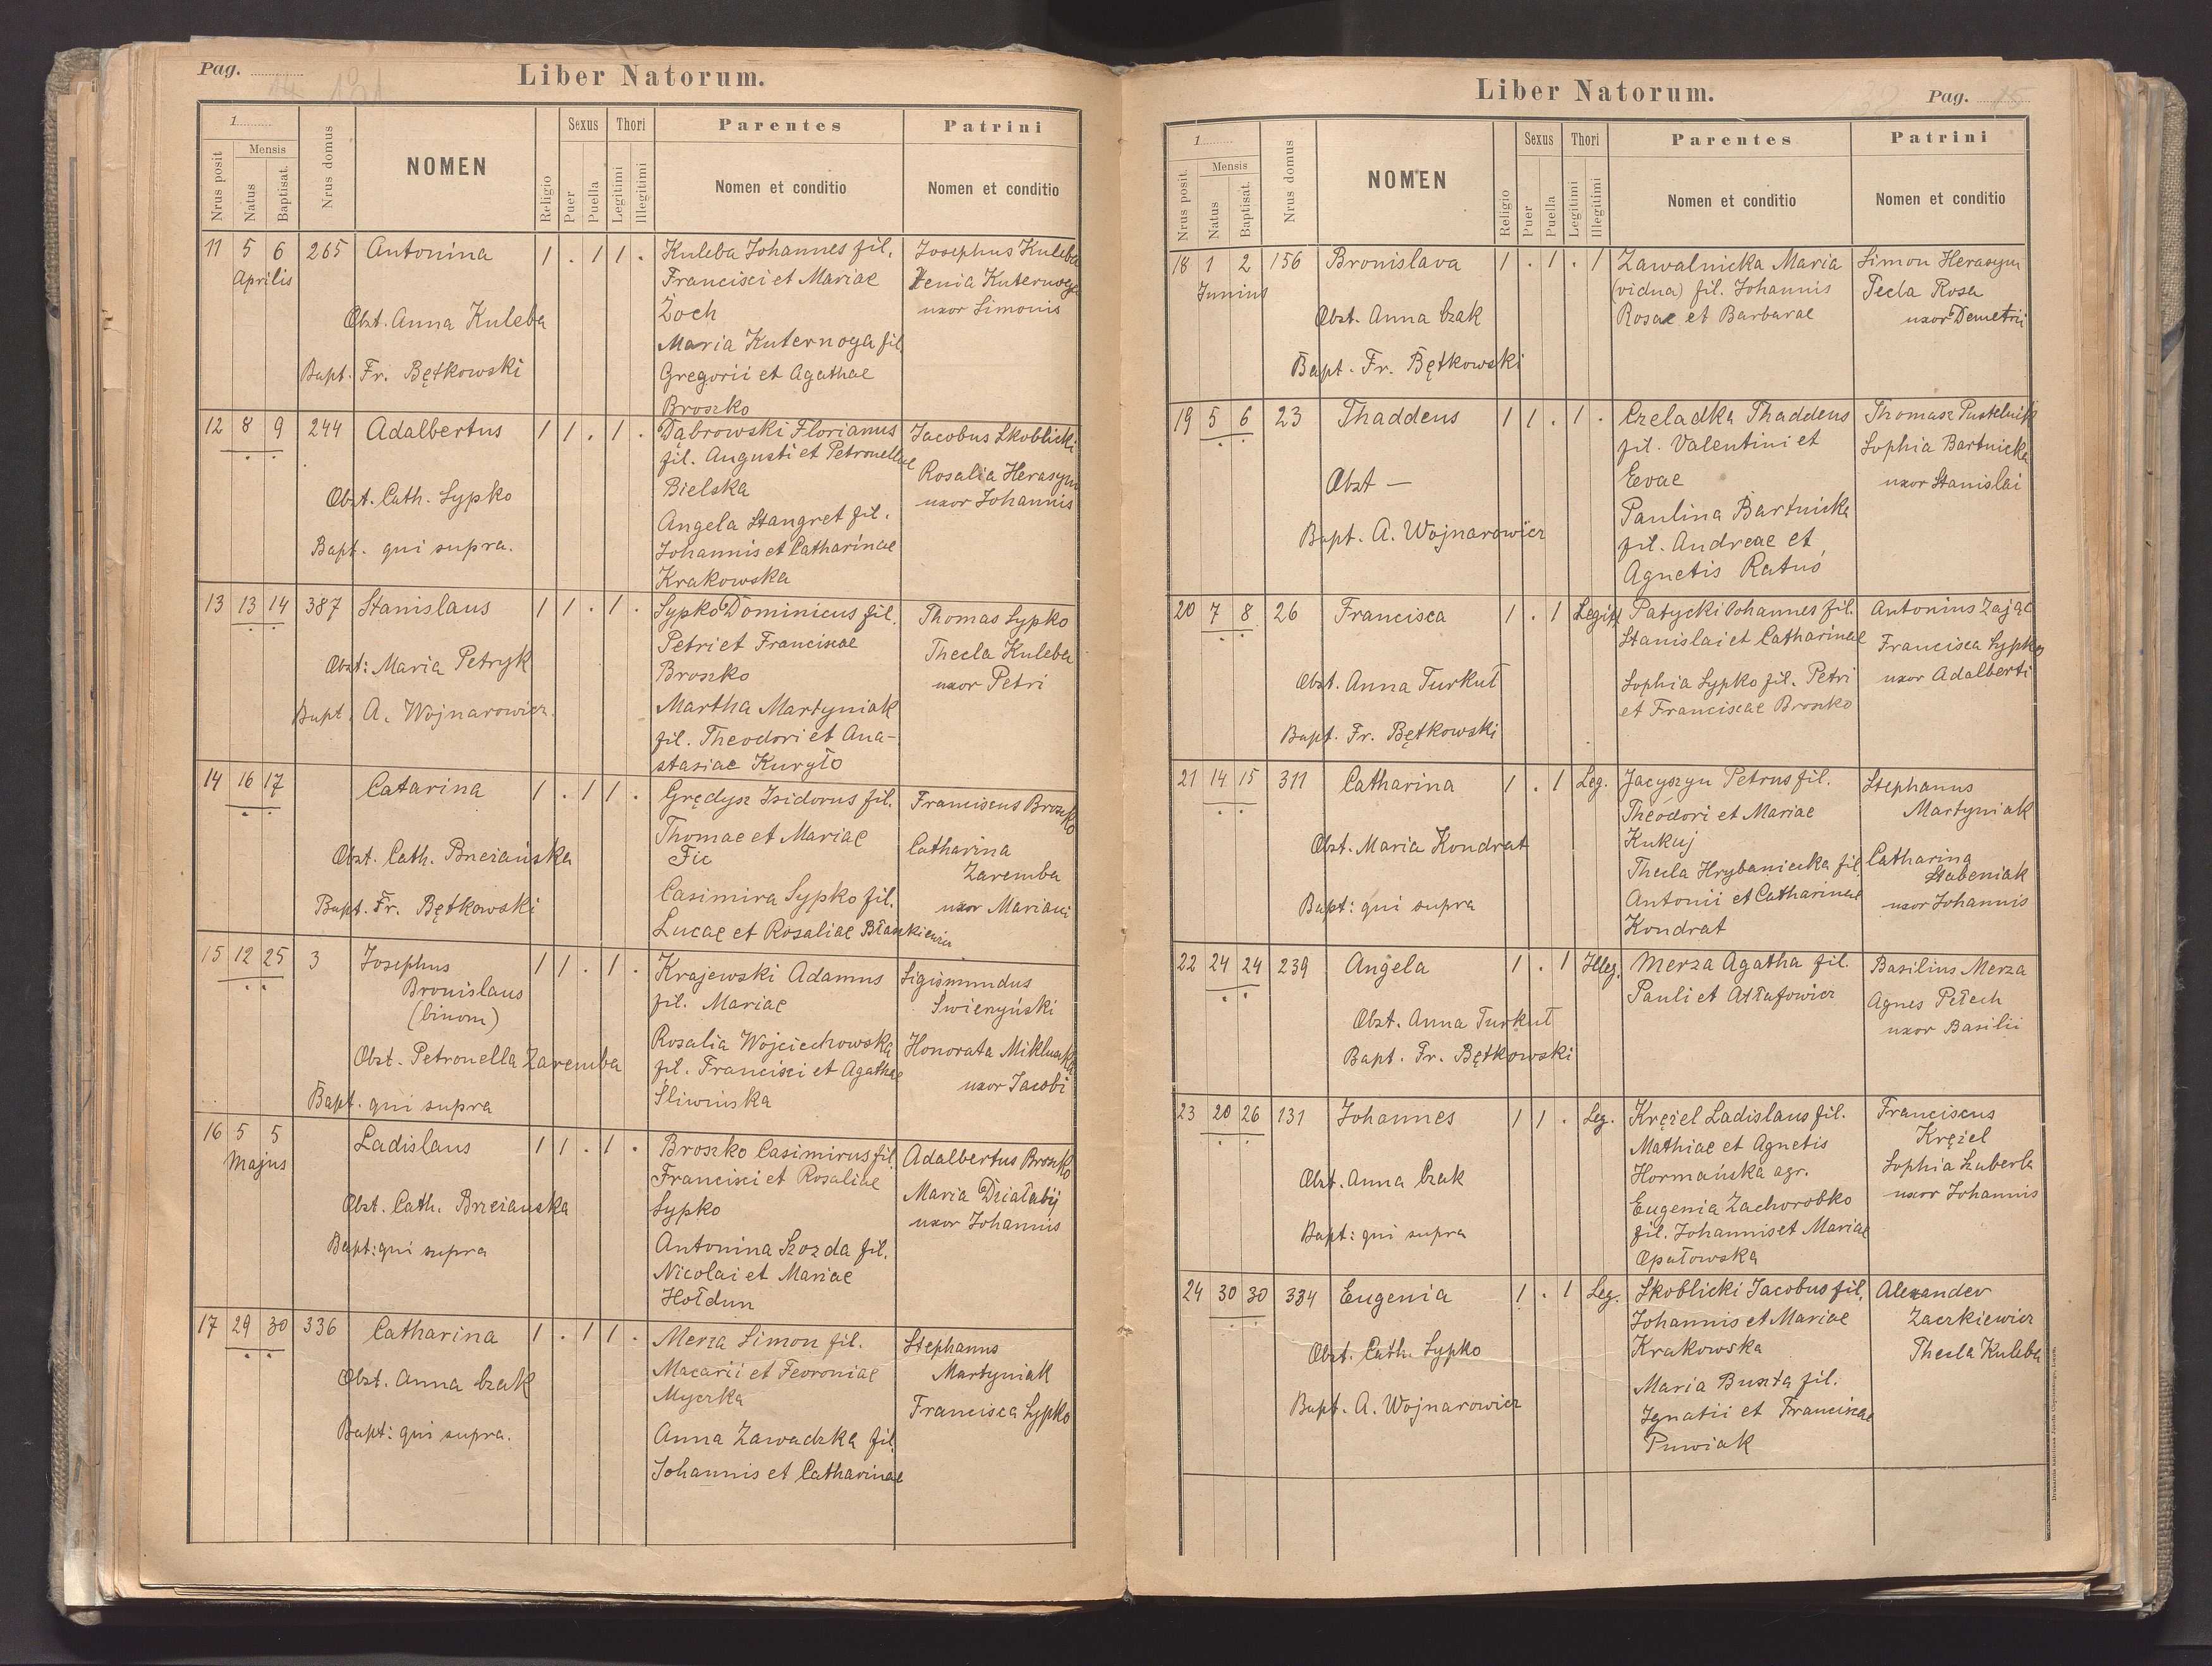 Pag.
Liber Natorum.
1
Nrus posit
Mensis
Natus
Baptisat.
Nrus domus
NOMEN
Religio
Sexus
Puer
Puella
Thori
Legitimi
Illegitimi
Parentes
Nomen et conditio
Patrini
Nomen et conditio
11 5 6 265 Antonina 1 . 1 1 . Kuleba Johannes fil. Josephus Kuleba
Aprilis Francisci et Mariae Xenia Kuternoga
Żoch uxor Simonis
Obst. Anna Kuleba Maria Kuternoga fil.
Bapt. Fr. Bętkowski Gregorii et Agathae
Broszko
12 8 9 244 Adalbertus 1 1 . 1 . Dąbrowski Florianus Jacobus Skoblicki
fil. Augusti et Petronellae Rosalia Herasym
Bielska uxor Johannis
Obst. Cath. Sypko Angela Stangret fil.
Bapt. qui supra. Johannis et Catharinae
Krakowska
13 13 14 387 Stanislaus 1 1 . 1 . Sypko Dominicus fil. Thomas Sypko
Petri et Franciscae Thecla Kuleba
Obst: Maria Petryk Broszko uxor Petri
Bapt. A. Wojnarowicz. Martha Martyniak
fil. Theodori et Ana-
stasiae Kuryło
14 16 17 Catarina 1 . 1 1 . Grędysz Isidorus fil. Franciscus Broszko
Thomae et Mariae Catharina
Obst. Cath. Brzeżańska Fic Zaremba
Bapt. Fr. Bętkowski Casimira Sypko fil. uxor Mariani
Lucae et Rosaliae Błaszkiewicz
15 12 25 3 Josephus 1 1 . 1 . Krajewski Adamus Sigismundus
Bronislaus fil. Mariae Swienyński
(binom)
Obst. Petronella Zaremba Rosalia Wojciechowska Honorata Mikluszka
fil. Francisci et Agathae uxor Jacobi
Bapt. qui supra Śliwińska
16 5 5 Ladislaus 1 1 . 1 . Broszko Casimirus fil. Adalbertus Broszko
Majus Francisci et Rosaliae Maria Działabij
Obst. Cath. Brzeżanska Sypko uxor Johannis
Bapt: qui supra Antonina Szozda fil.
Nicolai et Mariae
Hołdun
17 29 30 336 Catharina 1 . 1 1 . Merza Simon fil. Stephanus
Macarii et Fevroniae Martyniak
Obst. Anna Czak Myczka Francisca Sypko
Bapt: qui supra. Anna Zawadzka fil.
Johannis et Catharinae
Liber Natorum.
Pag. 15
1
Nrus posit.
Mensis
Natus
Baptisat.
Nrus domus
NOMEN
Religio
Sexus
Puer
Puella
Thori
Legitimi
Illegitimi
Parentes
Nomen et conditio
Patrini
Nomen et conditio
18 1 2 156 Bronislava 1 . 1 . 1 Zawalnicka Maria Simon Herasym
Junius (vidua) fil. Johannis Tecla Rosa
Obst. Anna Czak Rosae et Barbarae uxor Demetrii
Bapt. Fr. Bętkowski
19 5 6 23 Thaddeus 1 1 . 1 . Czeladka Thaddeus Thomasz Pustelnik
fil. Valentini et Sophia Bartnicka
Obst — Evae uxor Stanislai
Bapt. A. Wojnarowicz Paulina Bartnicka
fil. Andreae et
Agnetis Ratuś
20 7 8 26 Francisca 1 . 1 Legit. Patycki Johannes fil. Antonius Zając
Stanislai et Catharinae Francisca Sypko
Obst. Anna Turkuł Sophia Sypko fil. Petri uxor Adalberti
Bapt. Fr. Bętkowski et Franciscae Broszko
21 14 15 311 Catharina 1 . 1 Leg. Jacyszyn Petrus fil. Stephanus
Theodori et Mariae Martyniak
Obst. Maria Kondrat Kukuj Catharina
Thecla Hrybaniecka fil. Stabeniak
Bapt: qui supra Antonii et Catharinae uxor Johannis
Kondrat
22 24 24 239 Angela 1 . 1 Illeg. Merza Agatha fil. Basilius Merza
Pauli et Attafowicz Agnes Pełech
Obst. Anna Turkuł uxor Basilii
Bapt. Fr. Bętkowski
23 20 26 131 Johannes 1 1 . Leg. Krężel Ladislaus fil. Franciscus
Mathiae et Agnetis Krężel
Obst. Anna Czak Hormańska agr. Sophia Szuberla
Eugenia Zachorobko uxor Johannis
Bapt: qui supra fil. Johannis et Mariae
Opałowska
24 30 30 334 Eugenia 1 . 1 Leg. Skoblicki Jacobus fil. Alexander
Johannis et Mariae Zaczkiewicz
Obst. Cath. Sypko Krakowska Thecla Kuleba
Bapt. A. Wojnarowicz Maria Buszta fil.
Ignatii et Franciscae
Puwiak